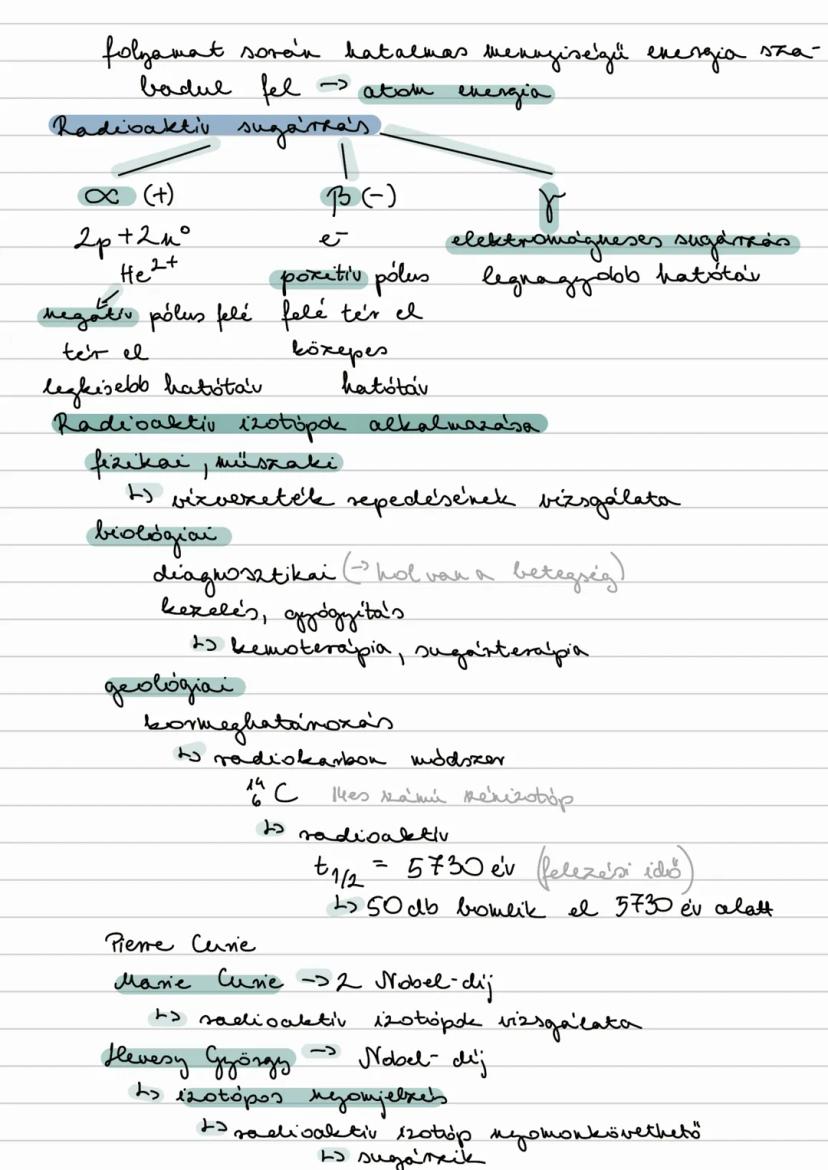 folyamat során hatalmas mennyiségű energia sza-
badul fel → atom energia
Radioaktív sugárzás
α (+)
2p + 2n°
He²⁺
negatív pólus felé
tér el
legkisebb hatótáv
β (-)
e⁻
pozitív pólus
felé tér el
közepes
hatótáv
γ
elektromágneses sugárzás
legnagyobb hatótáv
Radioaktív izotópok alkalmazása
fizikai, műszaki
↳ vízvezeték repedésének vizsgálata
biológiai
diagnosztikai (→ hol van a betegség)
kezelés, gyógyítás
↳ kemoterápia, sugárterápia
geológiai
kormeghatározás
↳ radiokarbon módszer
¹⁴₆C 14es számú szénizotóp
↳ radioaktív
t₁/₂ = 5730 év (felezési idő)
↳ 50 db bomlik el 5730 év alatt
Pierre Curie
Marie Curie → 2 Nobel-díj
↳ radioaktív izotópok vizsgálata
Hevesy György → Nobel-díj
↳ izotópos nyomjelzés
↳ radioaktív izotóp nyomonkövethető
↳ sugárzik